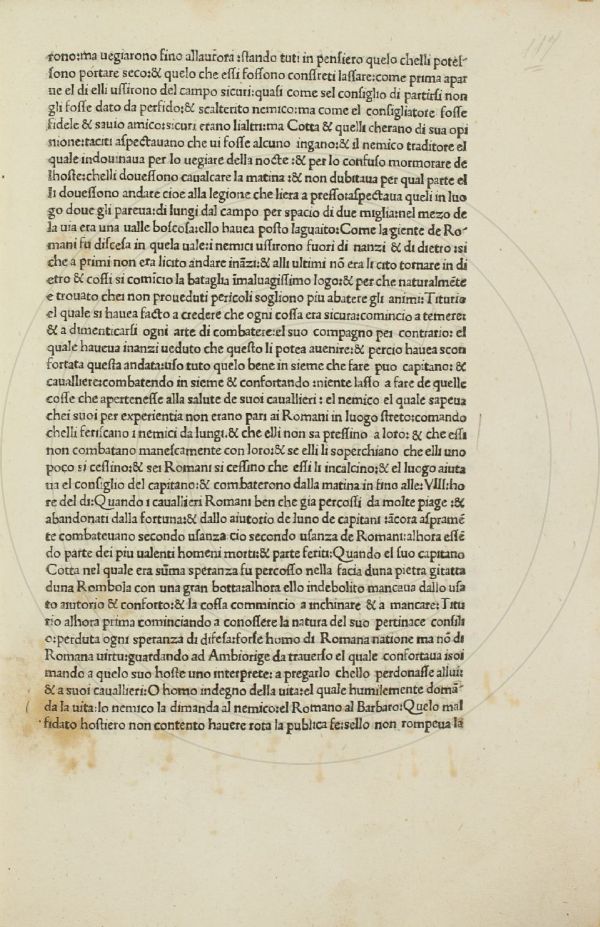 117
rono:ma uegiarono fino allaurora :stando tuti in pensiero quelo chelli potes-
sono portare seco:& quelo che essi fossono constreti lassare:come prima apar
ne el di elli ussirono del campo sicuri:quasi come sel consiglio di partirsi non
gli fosse dato da perfido:& scalterito nemico:ma come el consigliatore fosse
fidele & sauio amico:sicuri erano lialtri:ma Cotta & quelli cherano di sua opi
nione:taciti aspectauano che ui fosse alcuno ingano:& il nemico traditore el
quale indouinaua per lo uegiare della nocte :& per lo confuso mormorare de
lhoste:chelli douessono caualcare la matina :& non dubitaua per qual parte el
li douessono andare cioe alla legione che liera a presso:aspectaua queli in luo
go doue gli pareua:di lungi dal campo per spacio di due miglia:nel mezo de
la uia era una ualle boscosa:ello hauea posto laguaito:Come la giente de Ro-
mani fu discesa in quela uale:i nemici ussirono fuori di nanzi & di dietro :si
che a primi non era licito andare inãzi:& alli ultimi nõ era licito tornare in di
etro & cossi si comicio la bataglia ĩmaluagissimo logo:& per che naturalmẽte
e trouato chei non proueduti pericoli sogliono piu abatere gli animi:Titurio
el quale si hauea facto a credere che ogni cossa era sicura:comincio a temere:
& a dimenticarsi ogni arte di combatere:el suo compagno per contrario: el
quale haueua inanzi ueduto che questo li potea auenire:& percio hauea scon
fortata questa andata:uso tuto quelo bene in sieme che fare puo capitano:&
caualliere:combatendo in sieme & confortando :niente lasso a fare de quelle
cosse che apertenesse alla salute de suoi cauallieri : el nemico el quale sapeua
chei suoi per experientia non erano pari ai Romani in luogo streto:comando
chelli feriscano i nemici da lungi.& che elli non sa pressino a loro: & che essi
non combatano manescamente con loro:& se elli li soperchiano che elli uno
poco si cessino:& sei Romani si cessino che essi li incalcino:& el luogo aiuta
ua el consiglio del capitano:& combaterono dalla matina in fino alle:VIII:ho
re del di:Quando i cauallieri Romani ben che gia percossi da molte piage :&
abandonati dalla fortuna:& dallo aiutorio de luno de capitani :ãcora aspramẽ
te combateuano secondo usanza cio secondo usanza de Romani:alhora essẽ
do parte dei piu ualenti homeni morti:& parte feriti:Quando el suo capitano
Cotta nel quale era sũma speranza fu percosso nella facia duna pietra gitatta
duna Rombola con una gran botta:alhora ello indebolito mancaua dallo usa
to aiutorio & conforto:& la cossa commincio a inchinare & a mancare:Titu
rio alhora prima cominciando a conossere la natura del suo pertinace consili
o:perduta ogni speranza di difesa:forse homo di Romana natione ma nõ di
Romana uirtu:guardando ad Ambiorige da trauerso el quale confortaua isoi
mando a quelo suo hoste uno interprete: a pregarlo chello perdonasse allui:
& a suoi cauallieri:O homo indegno della uita:el quale humilemente domã-
da la uita:lo nemico la dimanda al nemico:el Romano al Barbaro:Quelo mal
fidato hostiero non contento hauere rota la publica fe:sello non rompeua la